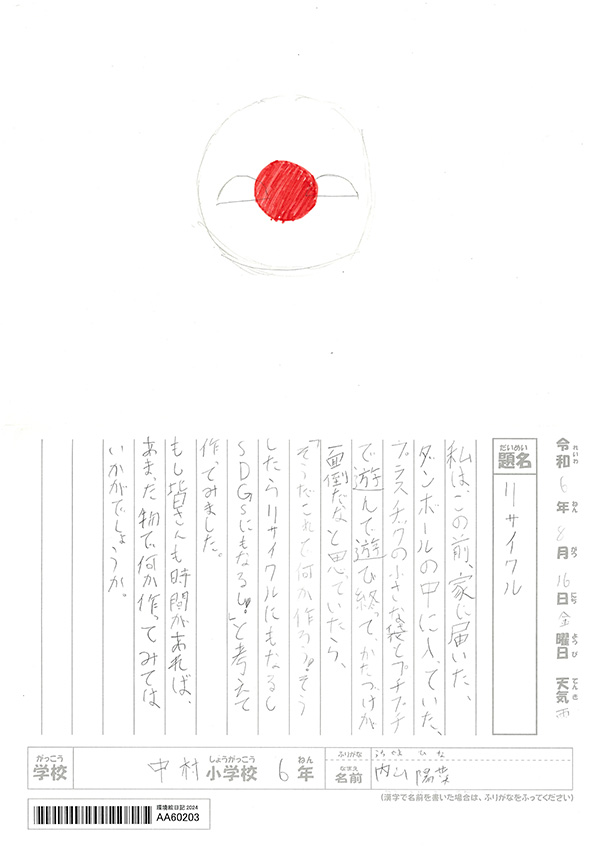 令和6年8月16日金曜日 天気 雨
れいわ ねん がつ にち ようび てんき
だいめい
題名 リサイクル
私はこの前、家に届いた、
ダンボールの中に入っていた、
プラスチックの小さな袋とプチプチ
で遊んで遊び終って、かたづけが
面倒だなと思っていたら、
「そうだこれで何か作ろう!そう
したらリサイクルにもなるし
SDGsにもなるし!」と考えて
作ってみました。
もし皆さんも時間があれば、
あまった物で何か作ってみては
いかがでしょうか。
がっこう しょうがっこう ねん
学校 中村小学校 6年
ふりがな うちやま ひな
なまえ
名前 内山 陽菜
(漢字で名前を書いた場合は、ふりがなをふってください)
環境絵日記 2024
AA60203